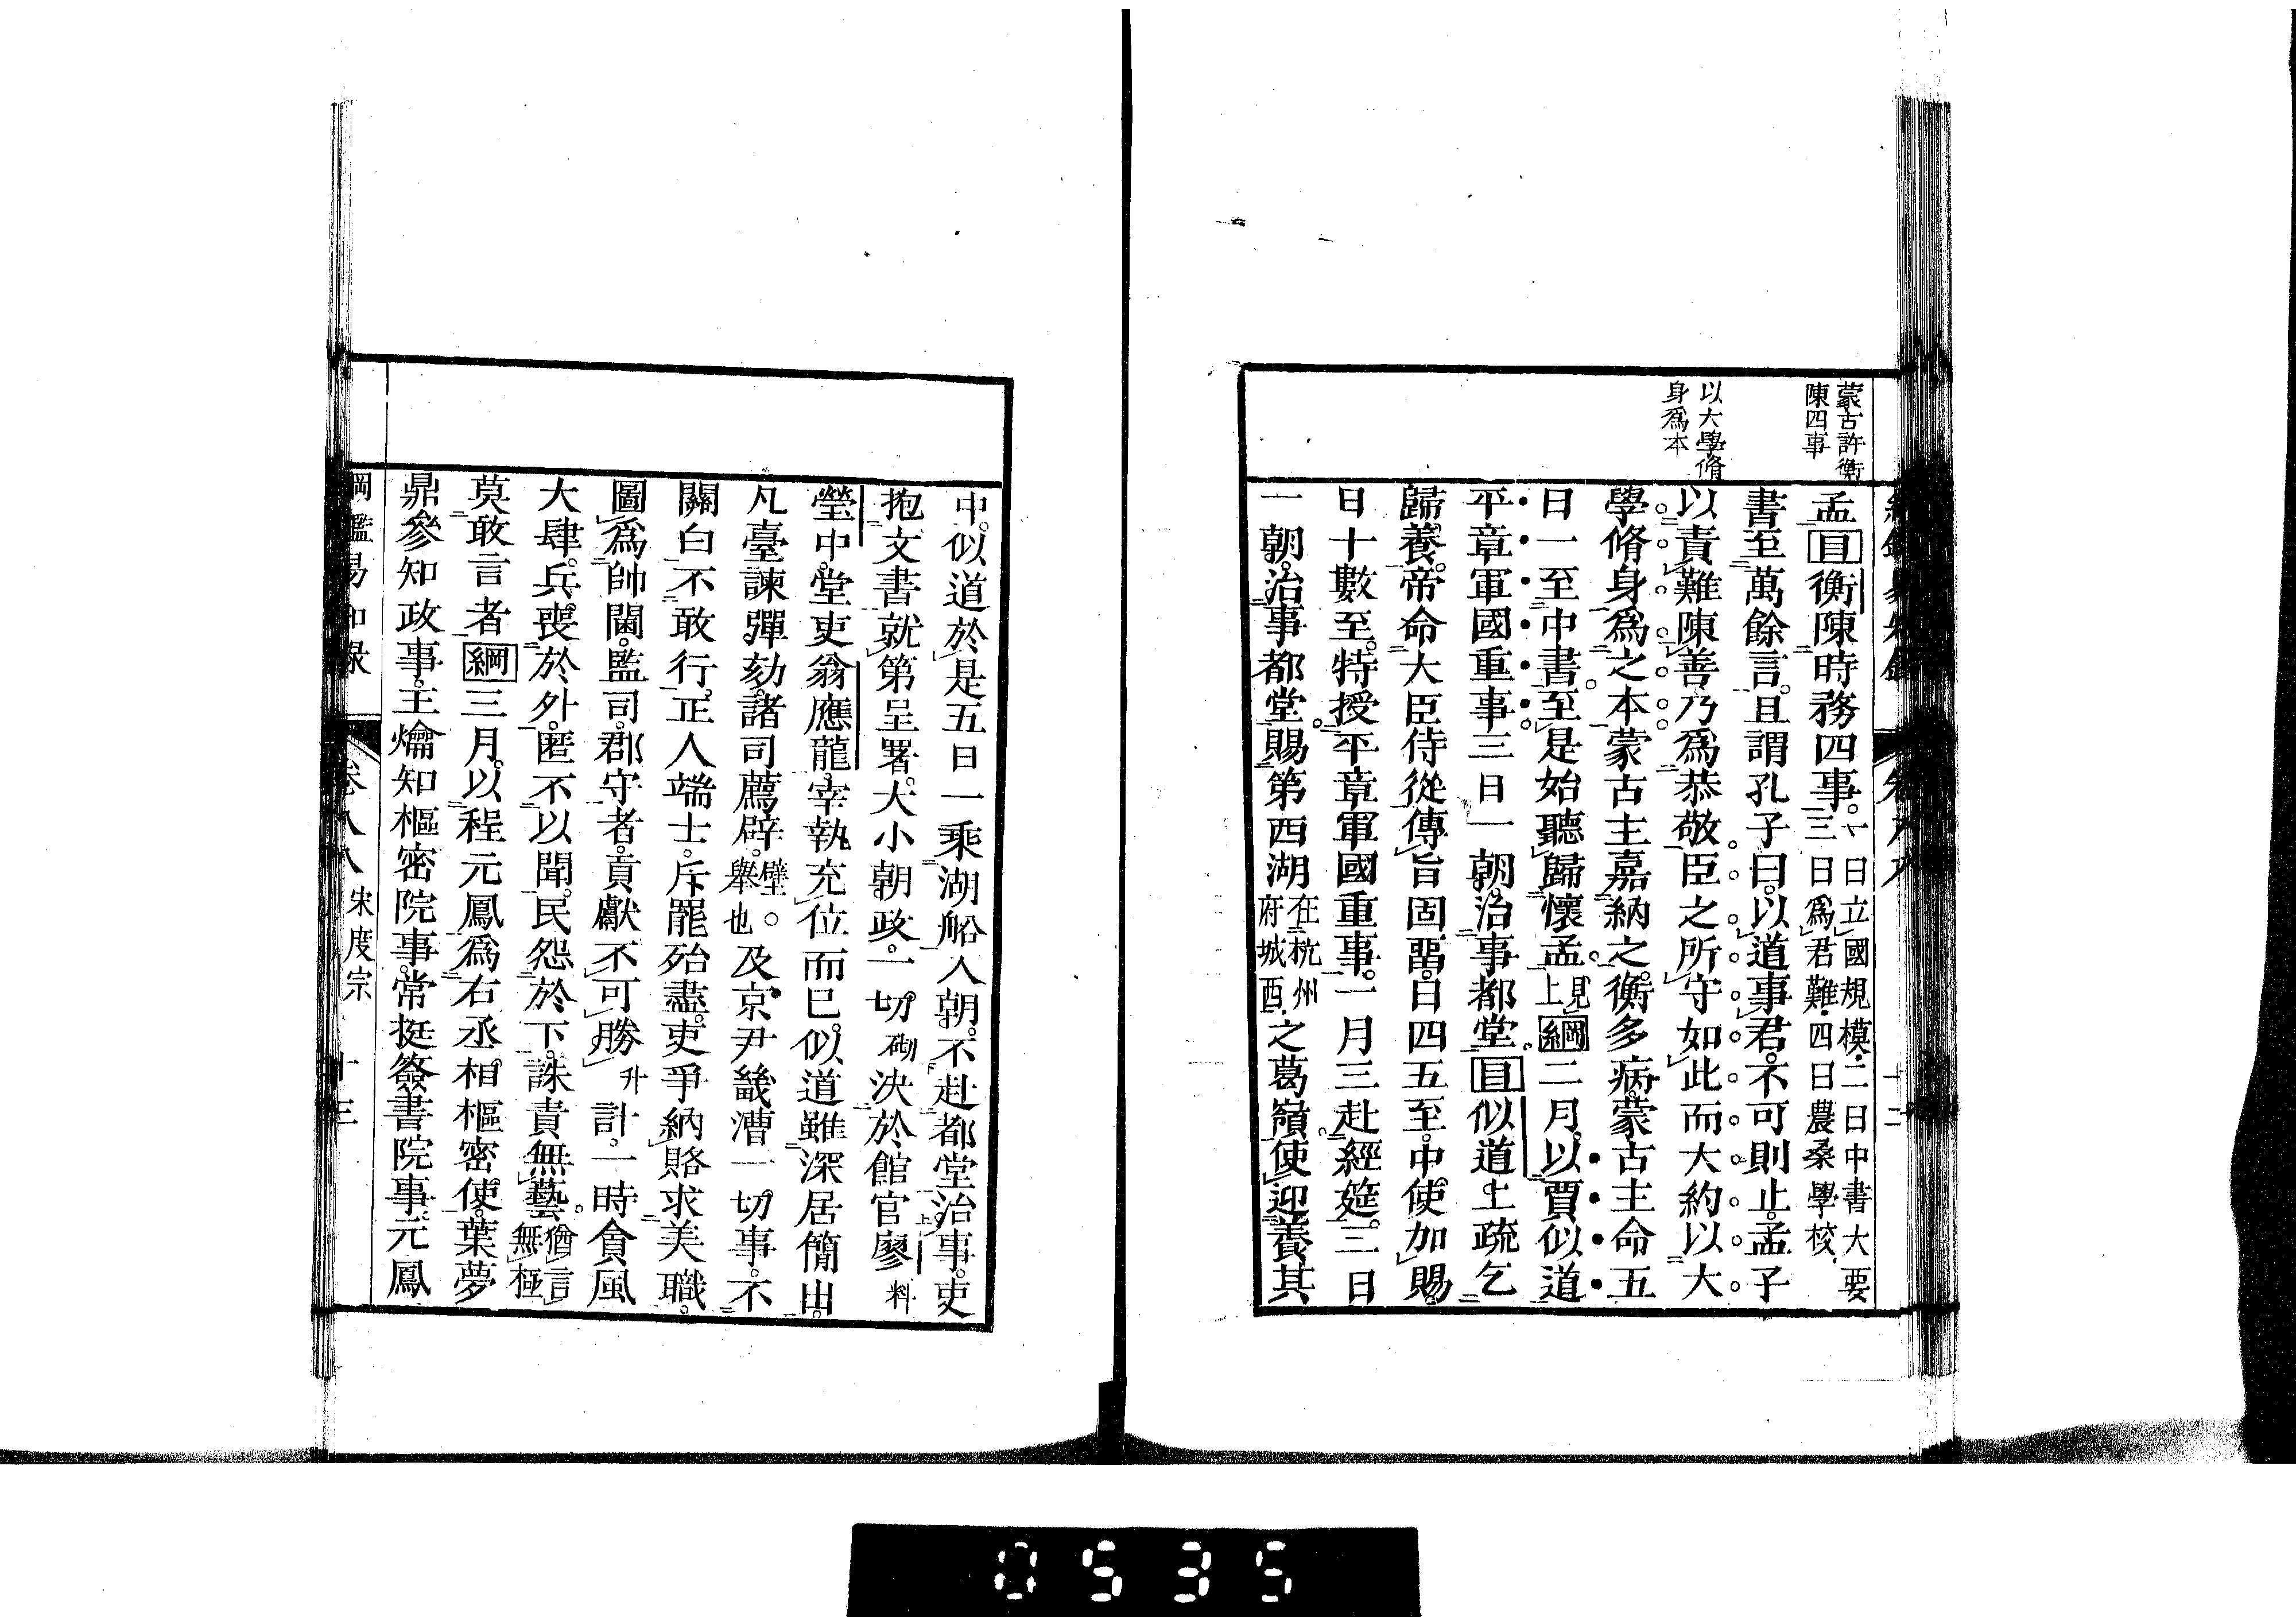 蒙古許衡
陳四事
以大學脩
身爲本
孟目衡陳時務四事一曰立國規模二曰中書大要
三曰爲君難四曰農桑學校
書至萬餘言且謂孔子曰以道事君不可則止孟子
以責難陳善乃爲恭敬臣之所守如此而大約以大
學脩身爲之本蒙古主嘉納之衡多病蒙古主命五
日一至中書至是始聽歸懷孟見上綱二月以賈似道
平章軍國重事三日一朝治事都堂目似道上疏乞
歸養帝命大臣侍從傳旨固畱日四五至中使加賜
日十數至特授平章軍國重事一月三赴經筵三日
一朝治事都堂賜第西湖在杭州府城西之葛嶺使迎養其
中似道於是五日一乘湖船入朝不赴都堂治事吏
抱文書就第呈署大小朝政一切砌決於館官廖料
瑩中堂吏翁應龍宰執充位而已似道雖深居簡出
凡臺諫彈劾諸司薦辟璧舉也及京尹畿漕一切事不
關白不敢行正人端士斥罷殆盡吏爭納賂求美職
圖爲帥閫監司郡守者貢獻不可勝升計一時貪風
大肆兵喪於外匿不以聞民怨於下誅責無藝猶言無極
莫敢言者綱三月以程元鳳爲右丞相樞密使葉夢
鼎參知政事王爚知樞密院事常挺簽書院事元鳳
綱鑑易知錄 卷八八 宋度宗 十三
0535